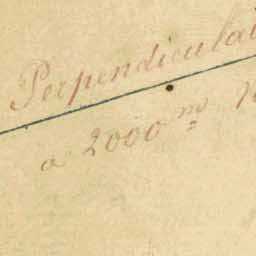 Perpendiculai
a 2000 m